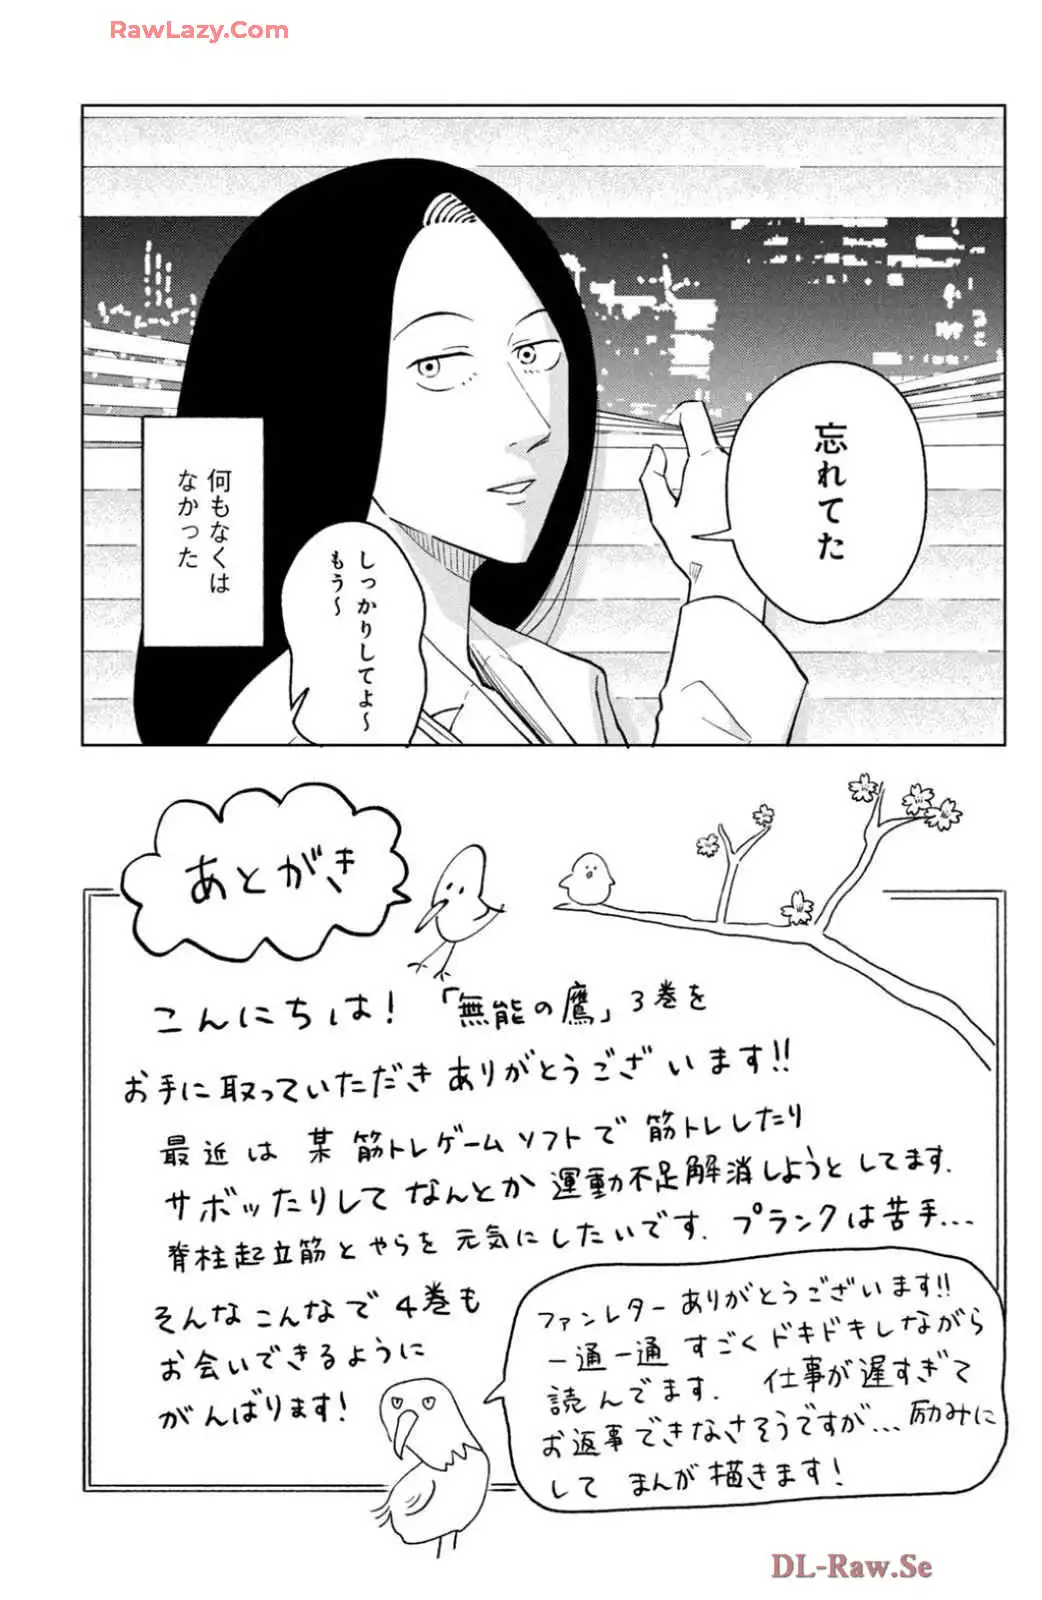 RawLazy.Com
忘れてた
しっかりしてよ〜
もう〜
何もなくは
なかった
あとがき
こんにちは!「無能の鷹」3巻を
お手に取っていただきありがとうございます!!
最近は某筋トレゲームソフトで筋トレしたり
サボッたりしてなんとか運動不足解消しようとしてます.
脊柱起立筋とやらを元気にしたいです.プランクは苦手...
そんなこんなで4巻も
お会いできるように
がんばります!
ファンレターありがとうございます!!
一通一通すごくドキドキしながら
読んでます. 仕事が遅すぎて
お返事できなさそうですが...励みに
してまんが描きます!
DL-Raw.Se